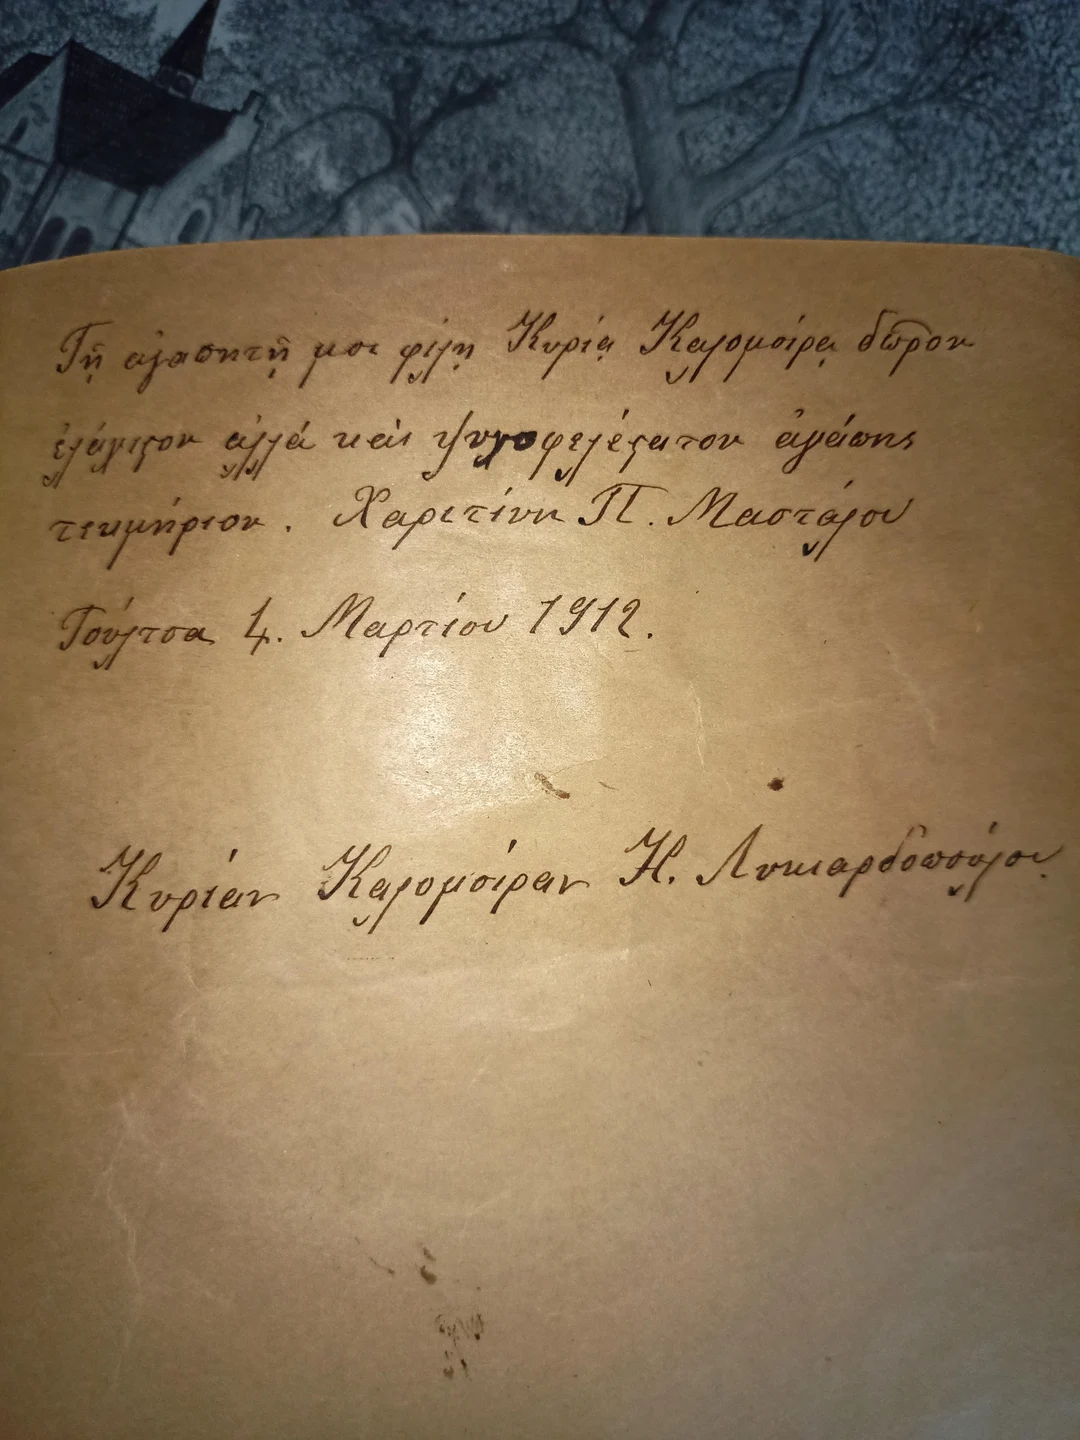 Τῇ ἀγαπητῇ μοι φίλῃ Κυρίᾳ Καλομοίρᾳ δῶρον
ἐλάχιστον ἀλλά καὶ ψυχοφελέστατον ἀγάπης
τεκμήριον. Χαριτίνη Π. Μαστάλου
Τούλτσα 4. Μαρτίου 1912.
Κυρίαν Καλομοίραν Η. Λυκιαρδοπούλου